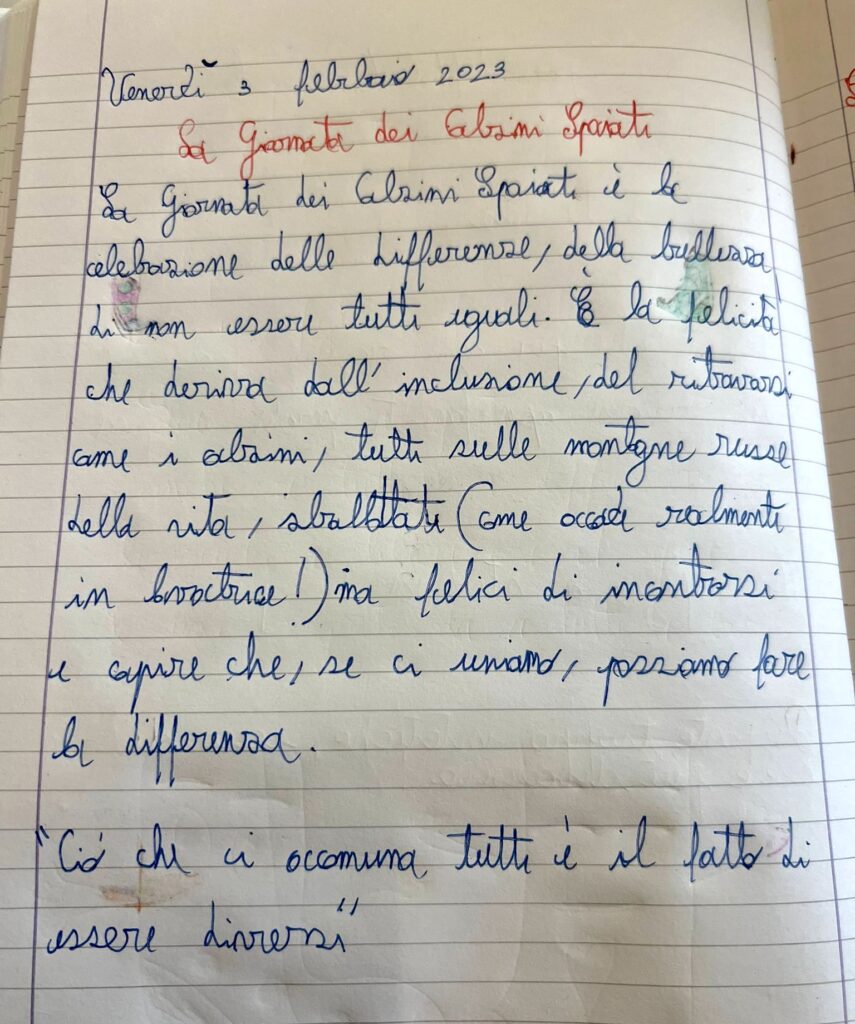 Venerdì 3 febbraio 2023
La Giornata dei Calzini Spaiati
La Giornata dei Calzini Spaiati è la
celebrazione delle differenze, della bellezza
di non essere tutti uguali. È la felicità
che deriva dall'inclusione, del ritrovarsi
come i calzini, tutti sulle montagne russe
della vita, sballottati (come accade realmente
in lavatrice!) ma felici di incontrarsi
e capire che, se ci uniamo, possiamo fare
la differenza.
"Ciò che ci accomuna tutti è il fatto di
essere diversi"